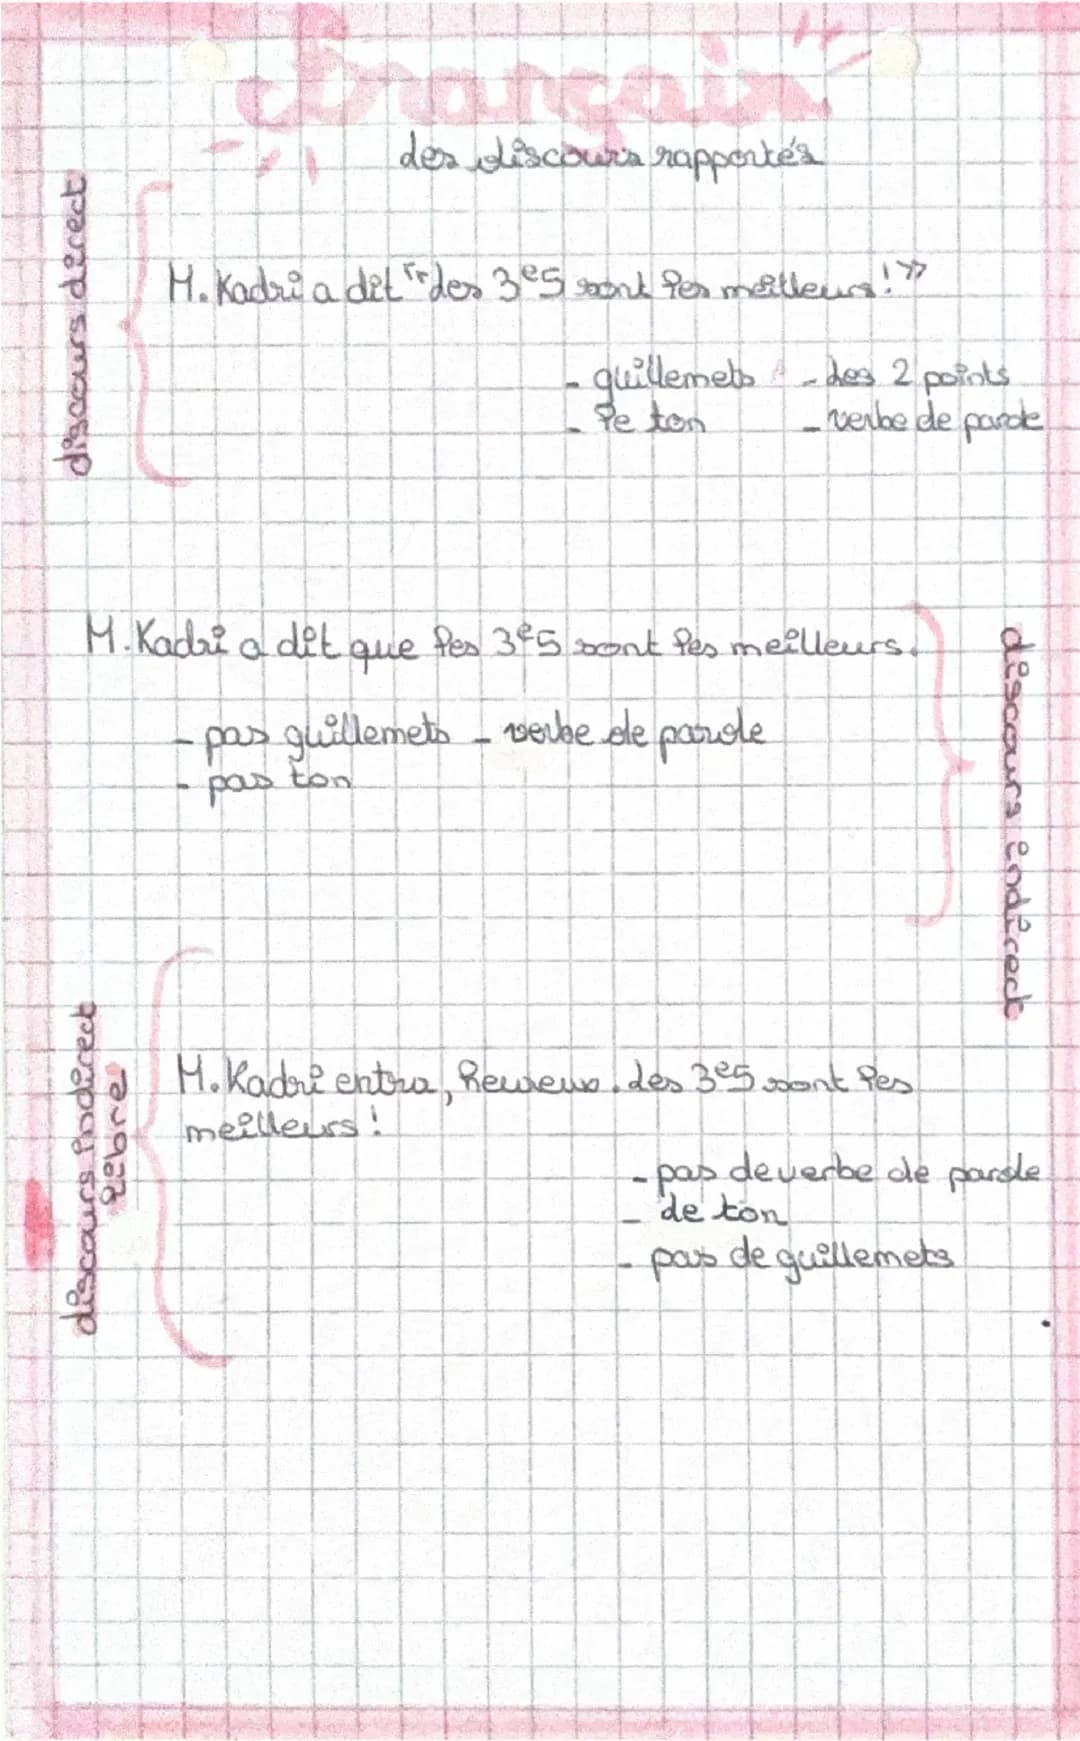 français
Les discours rapportés
discours direct
M. Kadri a dit "Les 3e5 sont les meilleurs!"
- guillemets - Les 2 points
- le ton - verbe de parole
M. Kadri a dit que les 3e5 sont les meilleurs.
- pas guillemets - verbe de parole
- pas ton
discours indirect
discours indirect
libre
M. Kadri entra, heureux. Les 3e5 sont les
meilleurs!
- pas de verbe de parole
- de ton
- pas de guillemets